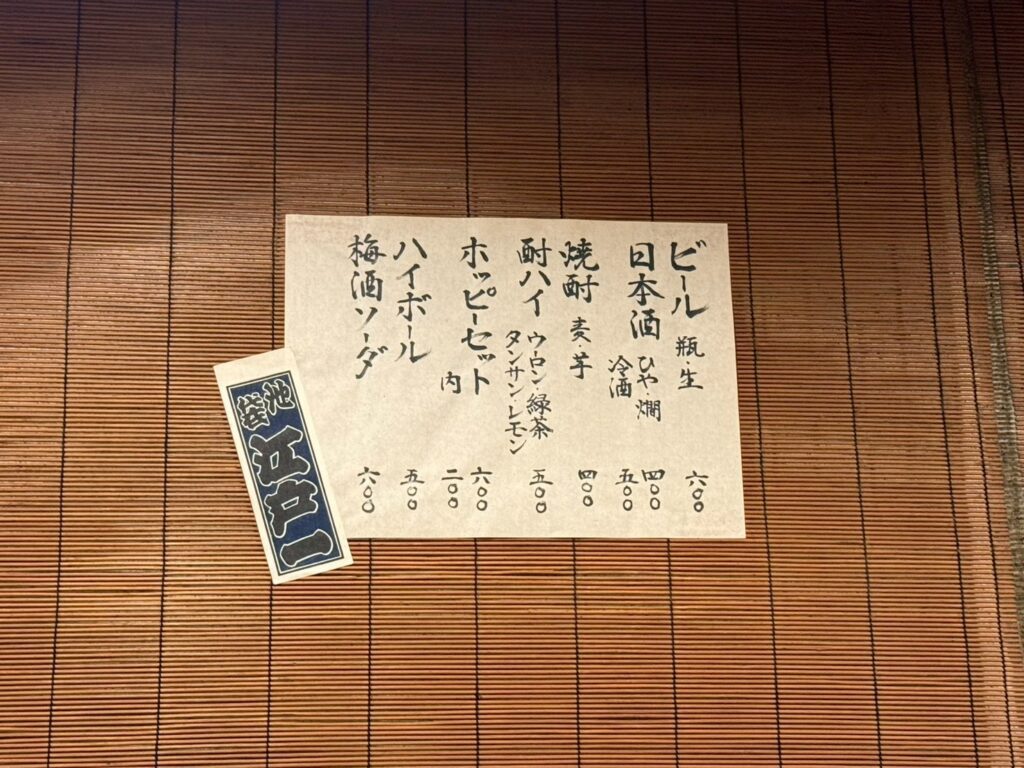 ビール 瓶・生 六〇〇
日本酒 ひや・燗 四〇〇
冷酒 五〇〇
焼酎 麦・芋 四〇〇
酎ハイ ウーロン・緑茶
タンサン・レモン 五〇〇
ホッピーセット 六〇〇
内 二〇〇
ハイボール 五〇〇
梅酒ソーダ 六〇〇
池袋
江戸一